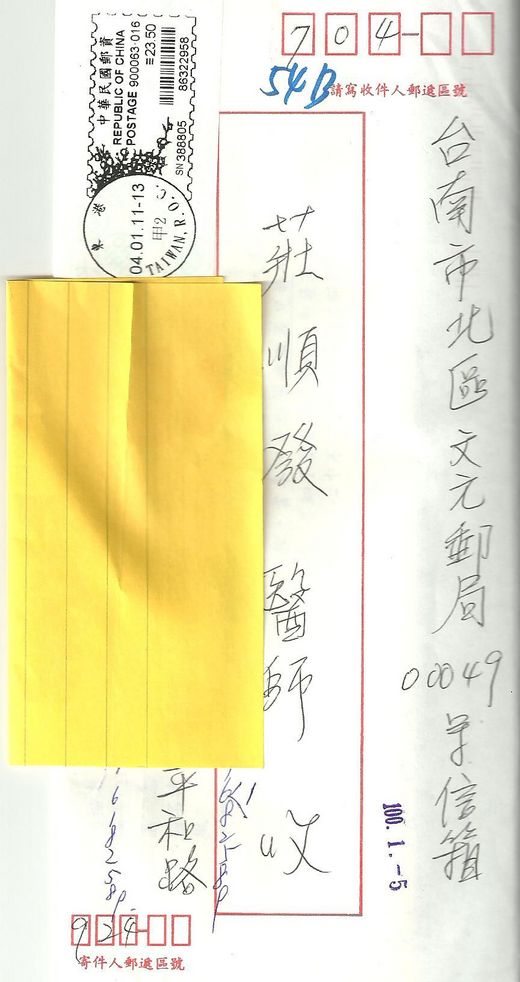 中華民國郵資
REPUBLIC OF CHINA
POSTAGE 900063-016
≡23.50
86322958
SN 388805
東港
04.01.11-13
甲2
TAIWAN, R.O.C.
704-
54B
請寫收件人郵遞區號
台南市北區文元郵局
00049 号信箱
莊順發醫師 收
100.1.-5
平和路
924-
寄件人郵遞區號